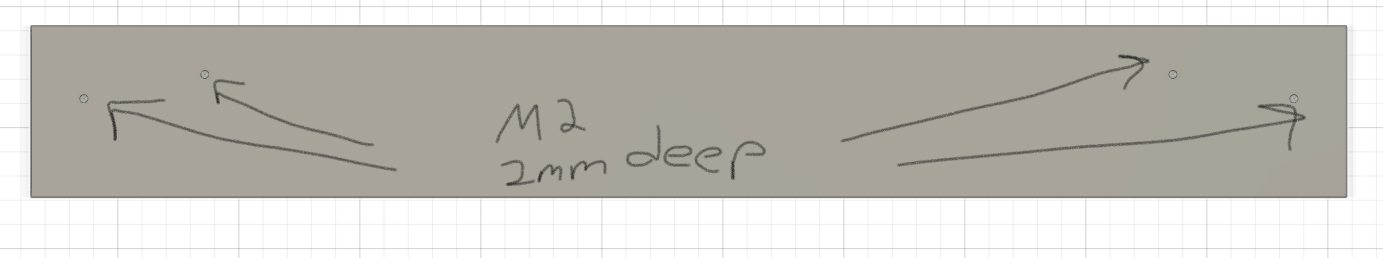 M2
2mm deep